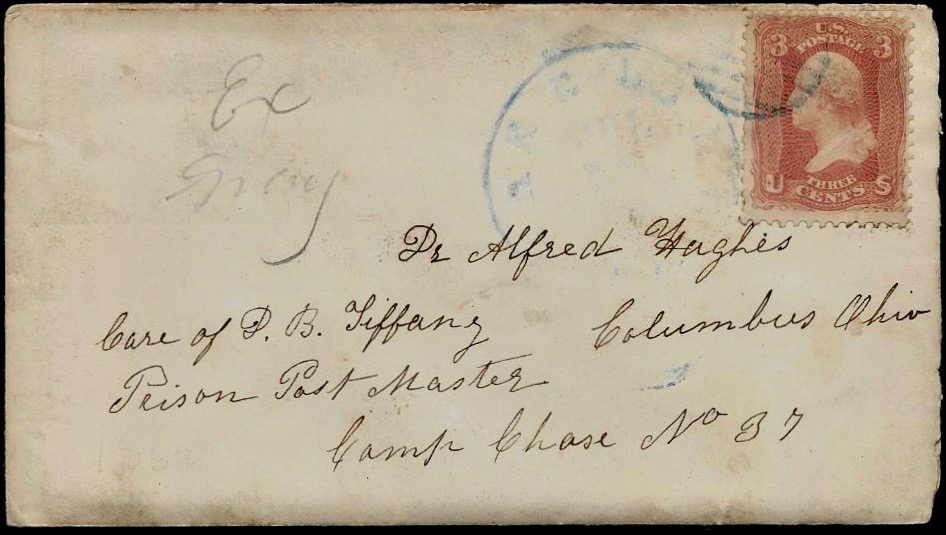 3 U.S. 3
POSTAGE
THREE
U CENTS S
Ex
Dr Alfred Hughes
Care of P. B. Tiffany Columbus Ohio
Prison Post Master
Camp Chase No 37